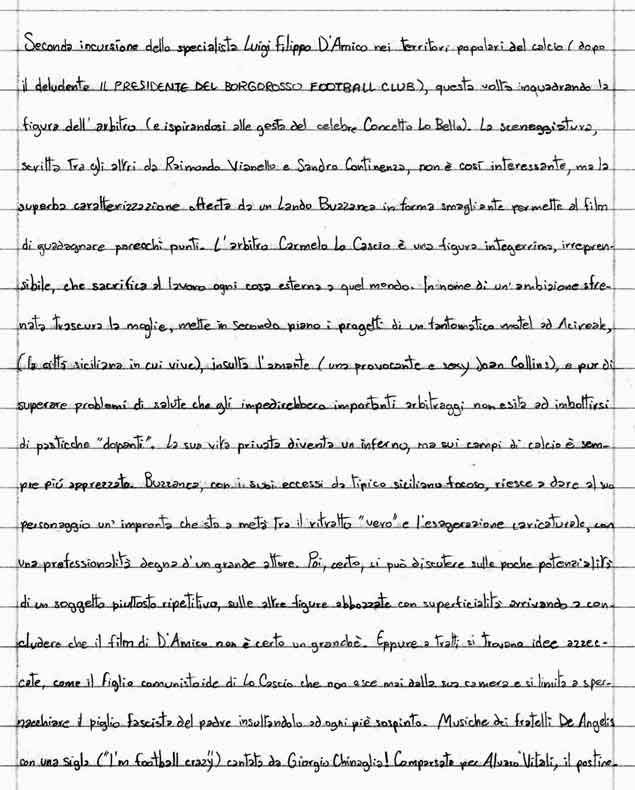 Seconda incursione dello specialista Luigi Filippo D'Amico nei territori popolari del calcio (dopo
il deludente IL PRESIDENTE DEL BORGOROSSO FOOTBALL CLUB), questa volta inquadrando la
figura dell'arbitro (e ispirandosi alle gesta del celebre Concetto Lo Bello). La sceneggiatura,
scritta tra gli altri da Raimondo Vianello e Sandro Continenza, non è così interessante, ma la
superba caratterizzazione offerta da un Lando Buzzanca in forma smagliante permette al film
di guadagnare parecchi punti. L'arbitro Carmelo Lo Cascio è una figura integerrima, irrepren-
sibile, che sacrifica al lavoro ogni cosa esterna a quel mondo. In nome di un'ambizione sfre-
nata trascura la moglie, mette in secondo piano i progetti di un fantomatico motel ad Acireale,
(la città siciliana in cui vive), insulta l'amante (una provocante e sexy Joan Collins), e pur di
superare problemi di salute che gli impedirebbero importanti arbitraggi non esita ad imbottirsi
di pasticche "dopanti". La sua vita privata diventa un inferno, ma sui campi di calcio è sem-
pre più apprezzato. Buzzanca, con i suoi eccessi da tipico siciliano focoso, riesce a dare al suo
personaggio un'impronta che sta a metà tra il ritratto "vero" e l'esagerazione caricaturale, con
una professionalità degna d'un grande attore. Poi, certo, si può discutere sulle poche potenzialità
di un soggetto piuttosto ripetitivo, sulle altre figure abbozzate con superficialità arrivando a con-
cludere che il film di D'Amico non è certo un granchè. Eppure a tratti si trovano idee azzec-
cate, come il figlio comunistoide di Lo Cascio che non esce mai dalla sua camera e si limita a sper-
nacchiare il piglio fascista del padre insultandolo ad ogni piè sospinto. Musiche dei fratelli De Angelis
con una sigla ("I'm football crazy") cantata da Giorgio Chinaglia! Comparsate per Alvaro Vitali, il postino.